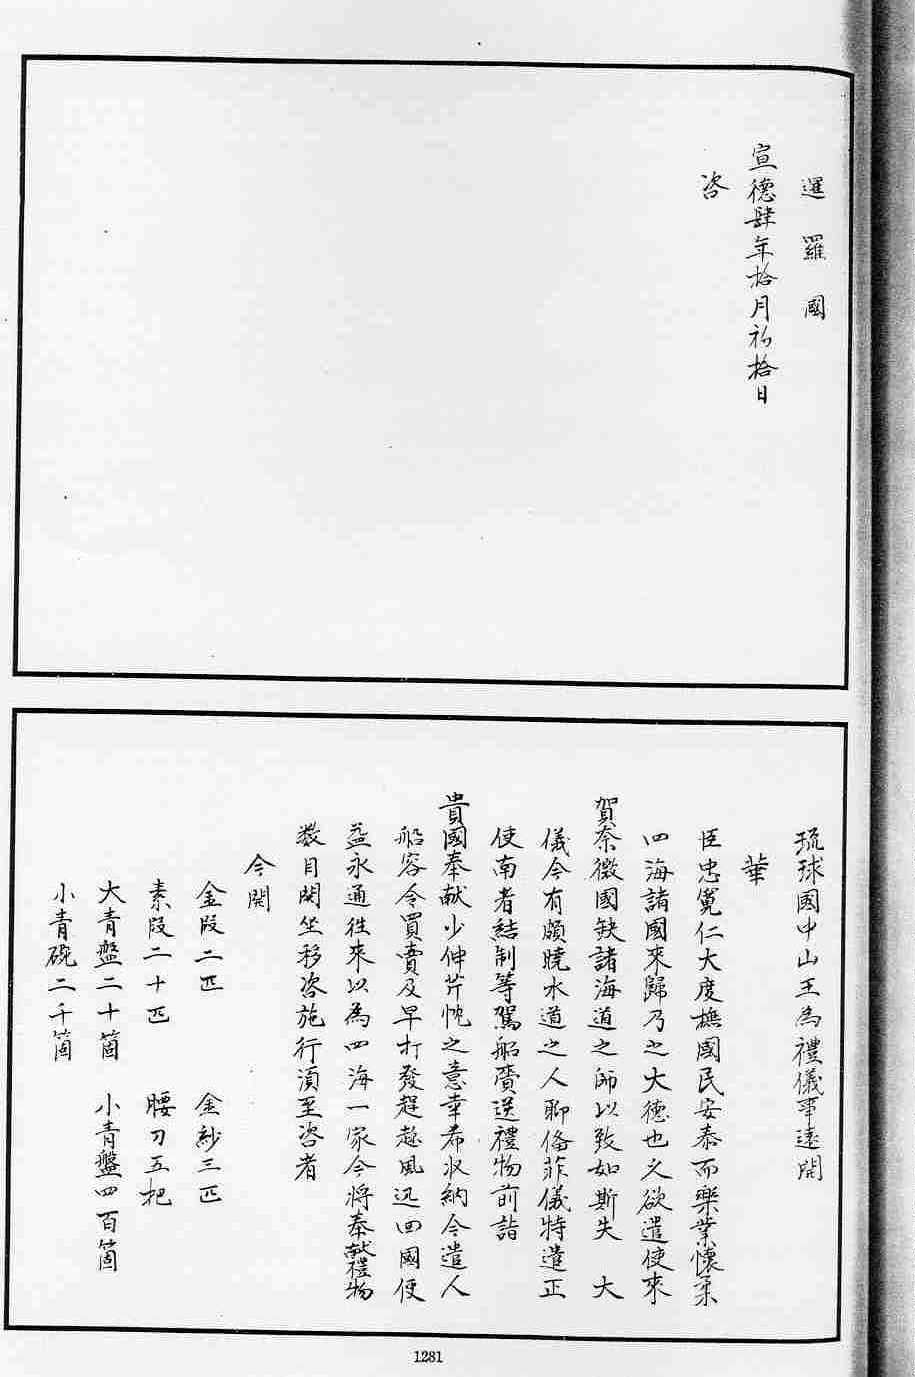 暹羅國
宣德肆年拾月初拾日
咨
琉球國中山王為禮儀事遠聞
華
臣忠寬仁大度撫國民安泰而樂業懷柔
四海諸國來歸乃之大德也久欲遣使來
賀奈微國缺諸海道之師以致如斯失 大
儀今有頗曉水道之人聊俻菲儀特遣正
使南者結制等駕船賫送禮物前詣
貴國奉献少伸芹忱之意幸希收納今遣人
船容令買賣及早打發趕趂風迅回國便
益永通徃來以為四海一家今將奉献禮物
数目開坐移咨施行須至咨者
今開
金段二匹 金紗三匹
素段二十匹 腰刀五把
大青盤二十箇 小青盤四百箇
小青碗二千箇
1281